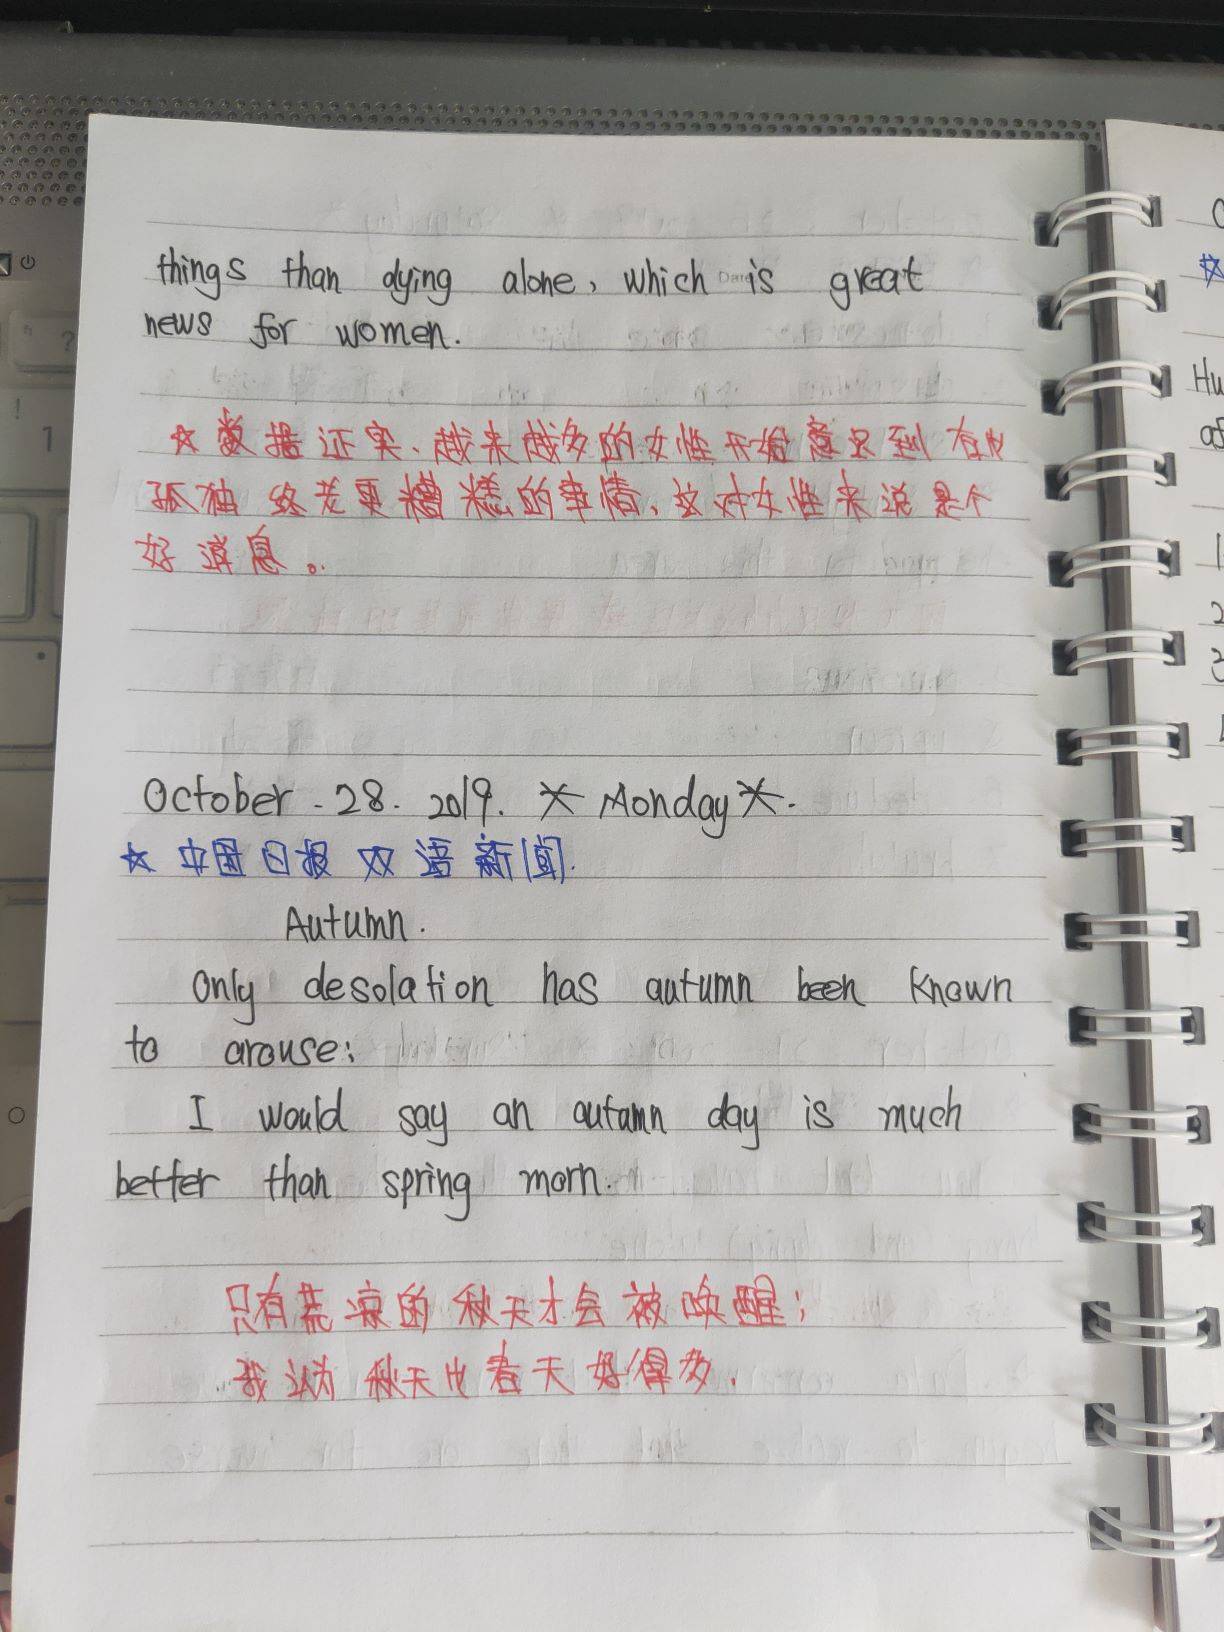 things than dying alone, which is great
news for women.
☆数据证实、越来越多的女性开始意识到有比
孤独终老更糟糕的事情、这对女性来说是个
好消息。
October - 28. 2019. * Monday *.
☆中国日报双语新闻.
Autumn.
Only desolation has autumn been known
to arouse:
I would say an autumn day is much
better than spring morn.
只有荒凉的秋天才会被唤醒;
我认为秋天比春天好得多.
Hu
1
2
3
? 
! 1